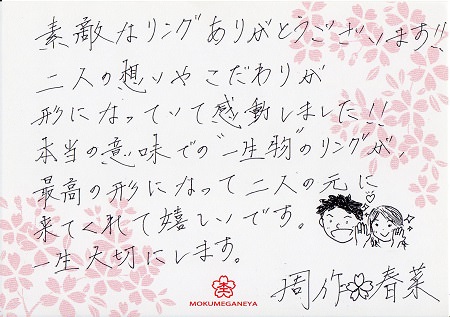 素敵なリングありがとうございます!!
二人の想いやこだわりが
形になっていて感動しました!!
本当の意味での"一生物"のリングが、
最高の形になって二人の元に
来てくれて嬉しいです。
一生大切にします。
周作 春菜
MOKUMEGANEYA